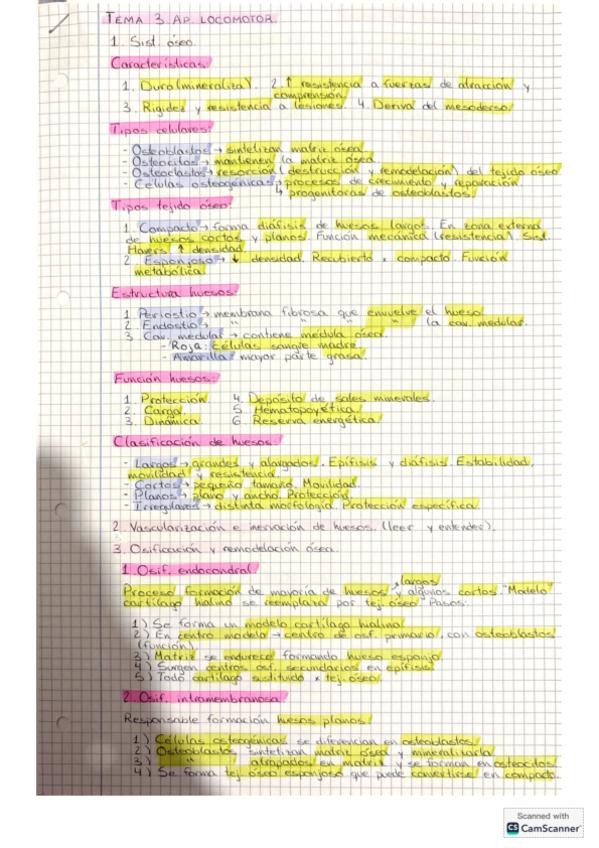 TEMA 3. AP. LOCOMOTOR.
1. Sist. óseo
Características:
1. Duro (mineraliza). 2. ↑ resistencia a fuerzas de atracción y
comprensión.
3. Rigidez y resistencia a lesiones. 4. Deriva del mesodermo.
Tipos celulares:
- Osteoblastos → sintetizan matriz ósea.
- Osteocitos → mantienen la matriz ósea.
- Osteoclastos → resorción (destrucción y remodelación) del tejido óseo
- Células osteogénicas → procesos de crecimiento y reparación.
↳ progenitoras de osteoblastos.
Tipos tejido óseo:
1. Compacto → forma diáfisis de huesos largos. En zona externa
de huesos cortos y planos. Función mecánica (resistencia). Sist.
Havers ↑ densidad.
2. Esponjoso → ↓ densidad. Recubierto x compacto. Función
metabólica.
Estructura huesos:
1. Periostio → membrana fibrosa que envuelve el hueso
2. Endostio → " " " " la cav. medular.
3. Cav. medular → contiene médula ósea.
- Roja: células sangre madre.
- Amarilla: mayor parte grasa.
Función huesos:
1. Protección 4. Depósito de sales minerales.
2. Carga. 5. Hematopoyética.
3. Dinámica 6. Reserva energética.
Clasificación de huesos:
- Largos → grandes y alargados. Epífisis y diáfisis. Estabilidad,
movilidad y resistencia.
- Cortos → pequeño tamaño. Movilidad.
- Planos → plano y ancho. Protección.
- Irregulares → distinta morfología. Protección específica.
2. Vascularización e inervación de huesos. (leer y entender).
3. Osificación y remodelación ósea.
1. Osif. endocondral
largos
Proceso formación de mayoría de huesos y algunos cortos. "Modelo"
cartílago hialino se reemplaza por tej. óseo. Pasos:
1) Se forma un modelo cartílago hialino.
2) En centro modelo → centro de osf. primario, con osteoblastos
(función).
3) Matriz se endurece formando hueso esponjo.
4) Surgen centros osf. secundarios en epífisis.
5) Todo cartílago sustituido x tej. óseo.
2. Osif. intramembranosa
Responsable formación huesos planos.
1) Células osteogénicas se diferencian en osteoblastos.
2) Osteoblastos sintetizan matriz ósea y mineralizarla.
3) " atrapados en matriz y se forman en osteocitos.
4) Se forma tej. óseo esponjoso que puede convertirse en compacto.
Scanned with
CS CamScanner